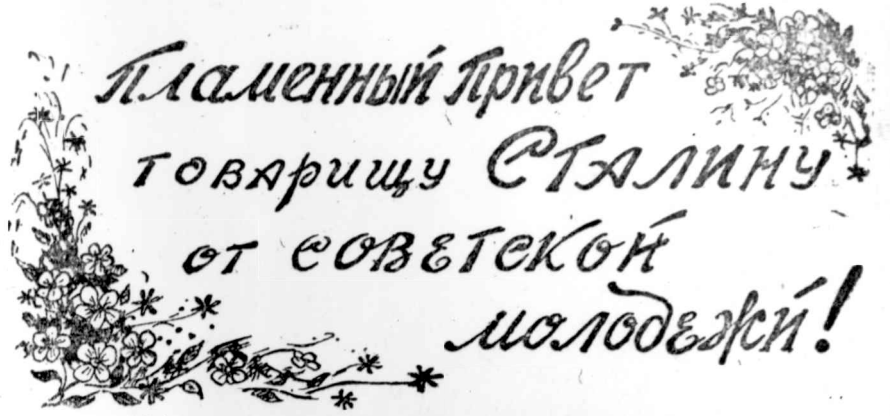 Пламенный Привет
товарищу Сталину
от советской
молодежи!